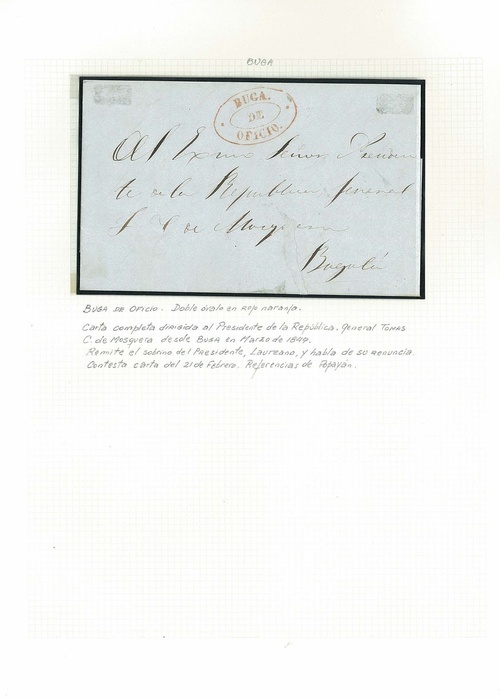 BUGA
BUGA.
DE
OFICIO.
Al Exmo Señor Presiden
te de la Republica General
T C de Mosquera
Bogotá
BUGA DE OFICIO. Doble óvalo en rojo naranja.
Carta completa dirigida al Presidente de la República. General TOMAS
C. de Mosquera desde BUGA en Marzo de 1849.
Remite el sobrino del Presidente, Laureano, y habla de su renuncia.
Contesta carta del 21 de Febrero. Referencias de Popayán.